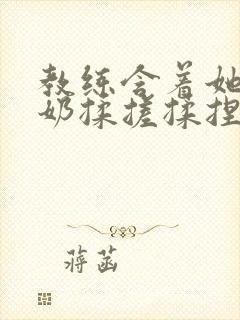 教练含着她
奶揉搓揉捏
蒋菡